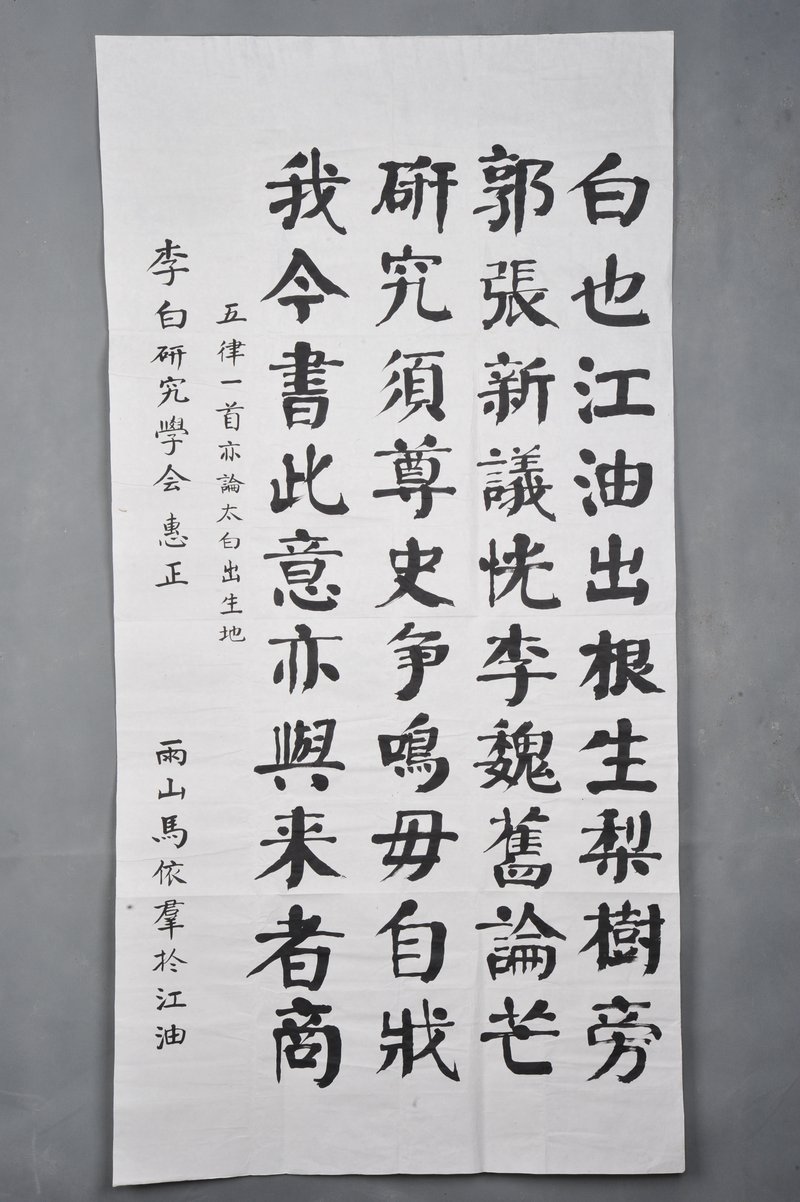 白也江油出根生梨樹旁
郭張新議恍李魏舊論芒
研究須尊史争鳴毋自戕
我今書此意亦與来者商
五律一首亦論太白出生地
李白研究學会惠正
雨山馬依羣於江油